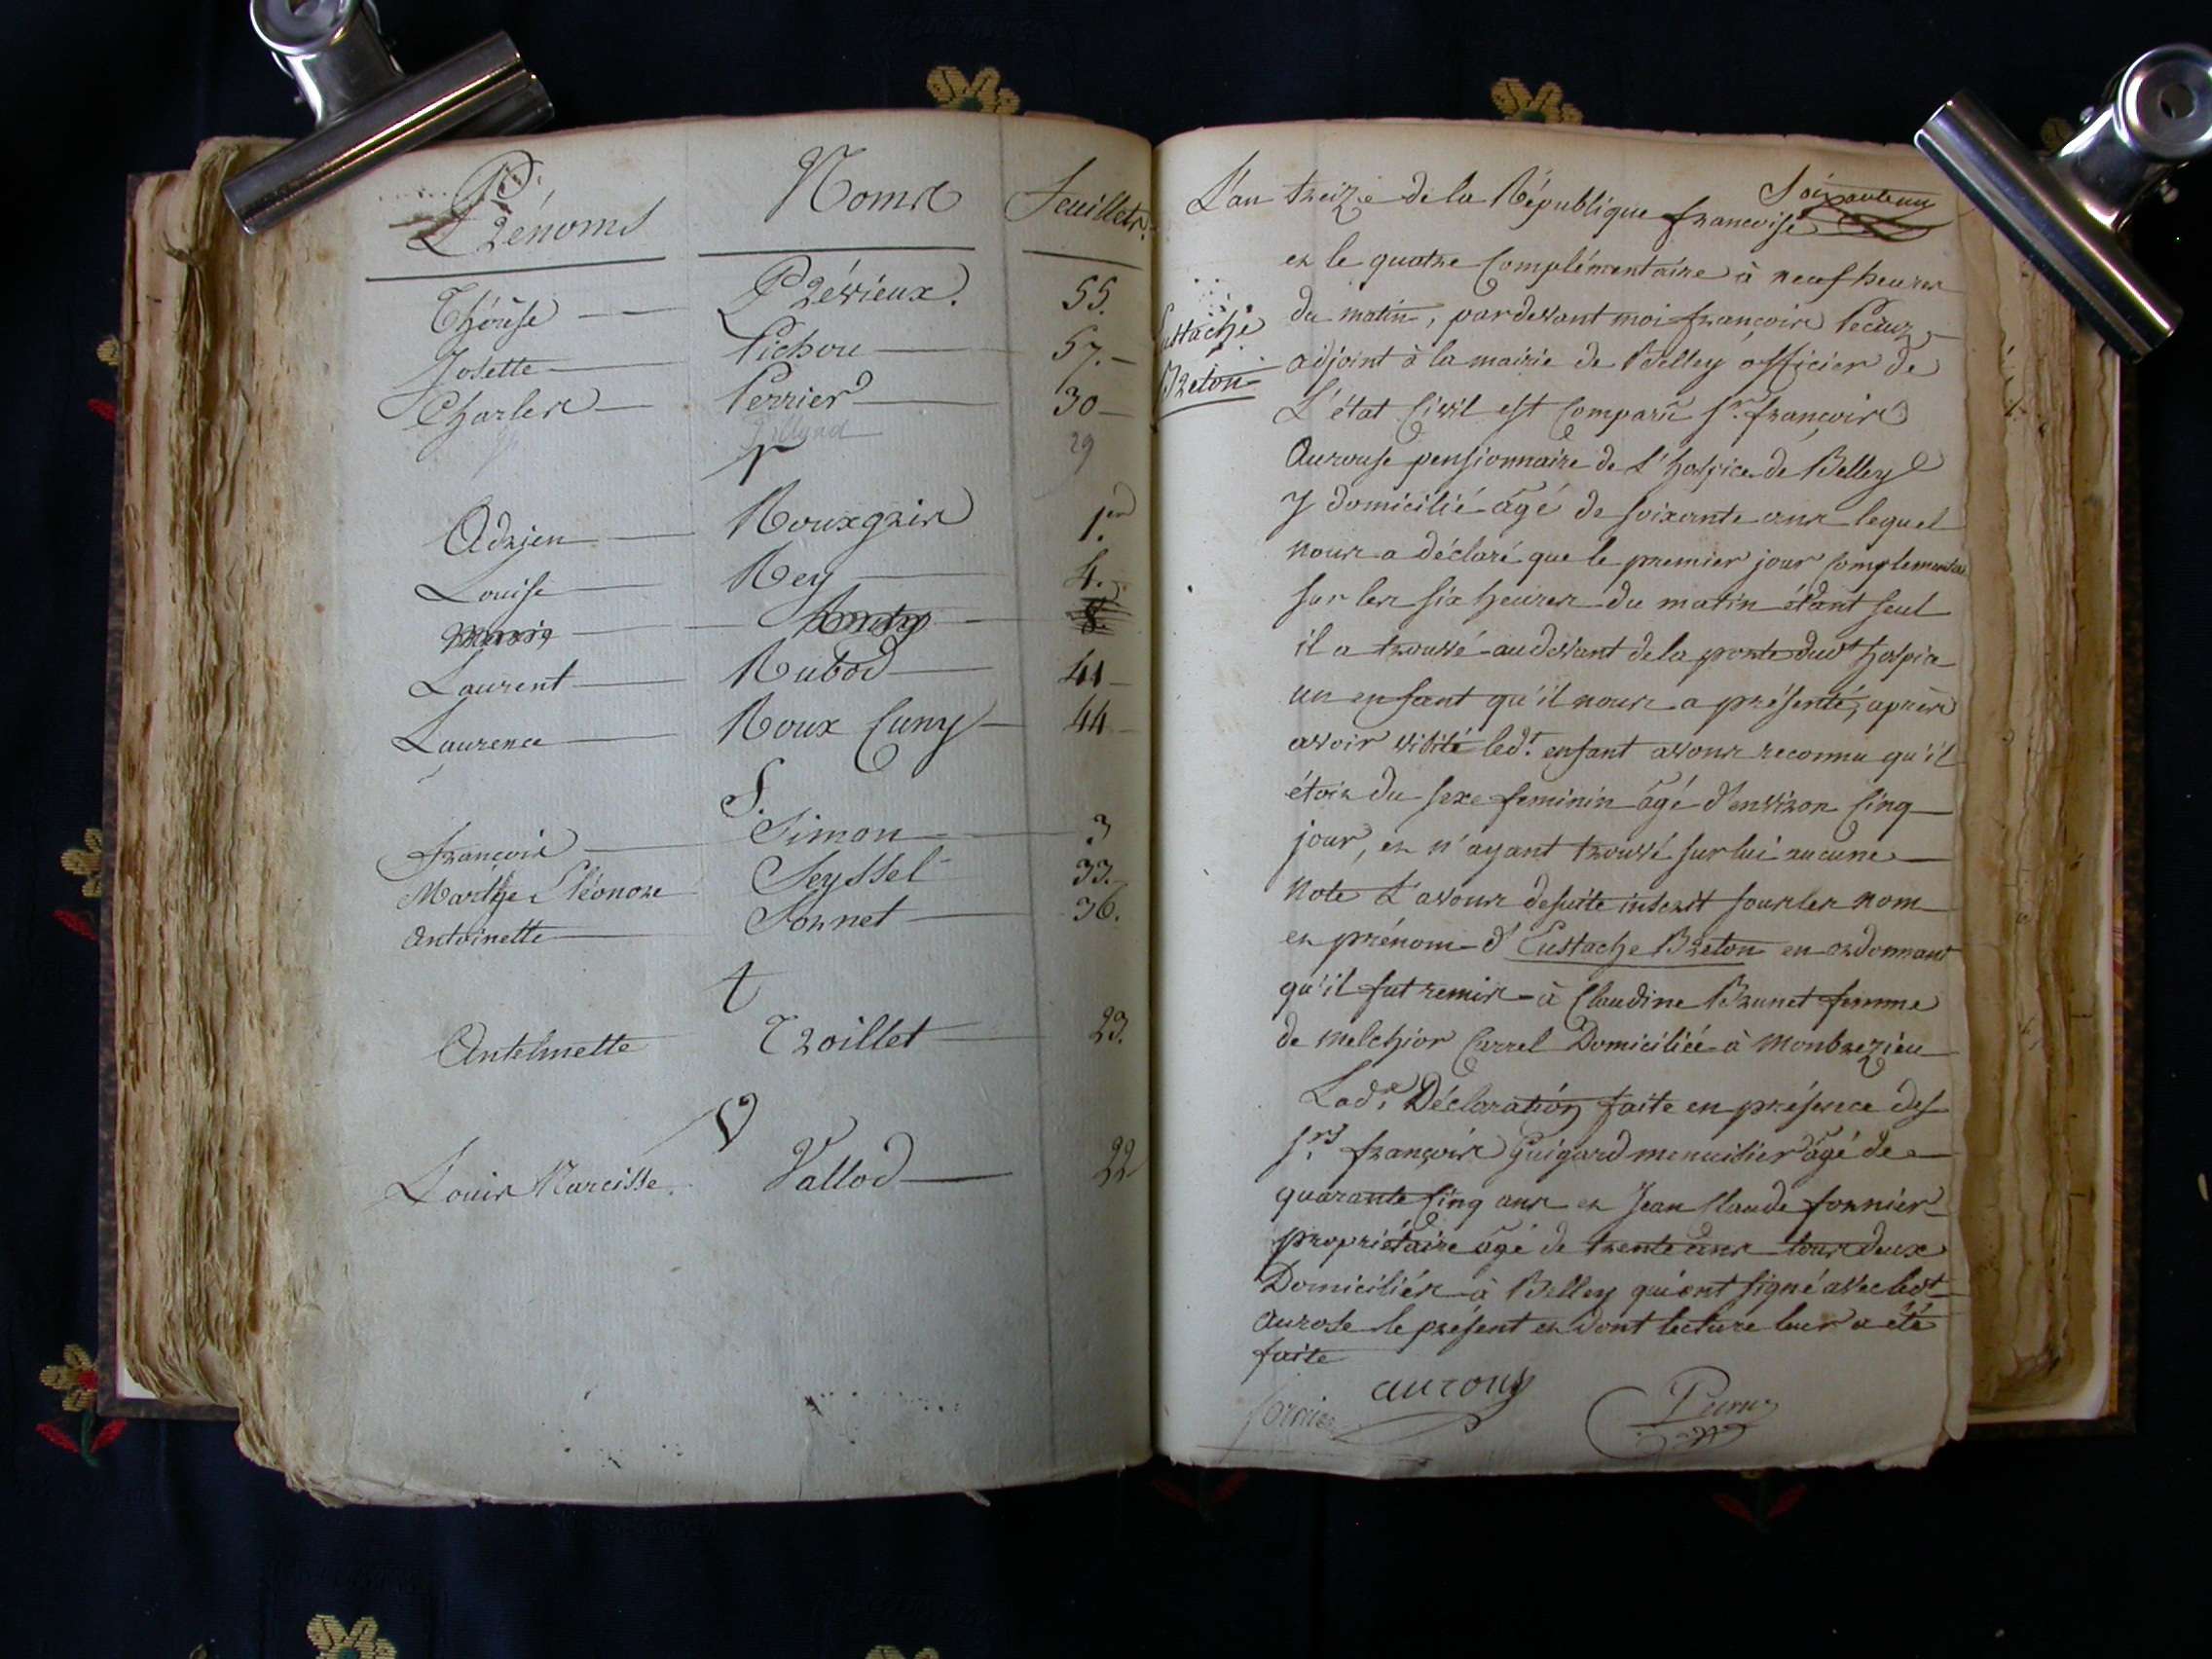 P.
Prénoms Noms Feuillets.
Thérèse Prévieux. 55.
Josette Pichou 57.
Charles Perrier 30
29
r
Adrien Rouxgrin 1.er
Louise Rey 4.
Marie 8.
Laurent Rubod 41
Laurence Roux Cuny 44
S.
françois Simon 3
Marthe Eléonore Seyssel 33.
Antoinette Sonnet 36.
t
Antelmette Troillet 23.
V
Louis Narcisse Vallod 22
Soixanteun
L'an treize de la République françoise
et le quatre Complémentaire à neuf heures
Eustache
Breton
du matin, pardevant moi françois Pecuz
adjoint à la mairie de Belley officier de
L'état Civil est Comparû Sr. françois
Aurouse pensionnaire de L'hospice de Belley
y domicilié âgé de soixante ans lequel
nous a déclaré que le premier jour complementaire
sur les six heures du matin étant seul
il a trouvé audevant de la porte dudt hospice
un enfant qu'il nous a présenté, après
avoir visité ledt. enfant avons reconnu qu'il
étoit du sexe feminin âgé d'environ Cinq
jour, et n'ayant trouvé sur lui aucune
note L'avons desuite inscrit sous les nom
et prénom d'Eustache Breton en ordonnant
qu'il fut remis à Claudine Brunet femme
de melchior Carrel Domiciliée à Monbrezieu
Lade. Déclaration faite en présence des
Srs. françois Guigard menuisier âgé de
quarante Cinq ans et Jean Claude fornier
propriétaire âgé de trente ans tous deux
Domiciliés à Belley qui ont signé avec ledt
aurose le présent et dont lecture leur a été
faite
aurouse
fornier